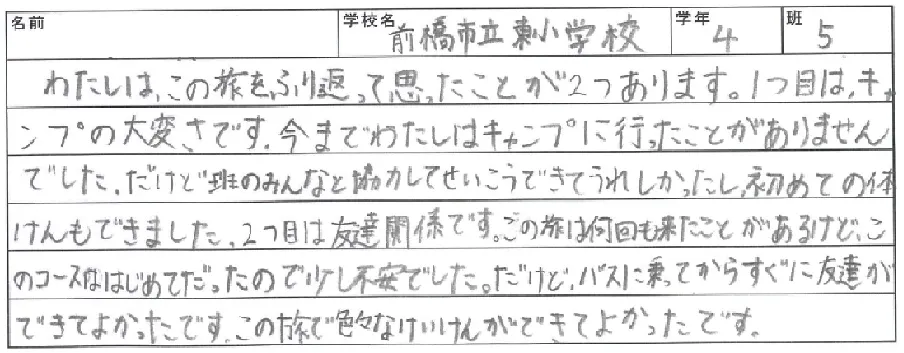 名前 学校名 前橋市立東小学校 学年 4 班 5
わたしは、この旅をふり返って思ったことが2つあります。1つ目は、キャ
ンプの大変さです。今までわたしはキャンプに行ったことがありません
でした。だけど班のみんなと協力してせいこうできてうれしかったし、初めての体
けんもできました。2つ目は友達関係です。この旅は何回も来たことがあるけど、こ
のコースははじめてだったので少し不安でした。だけど、バスに乗ってからすぐに友達が
できてよかったです。この旅で色々なけいけんができてよかったです。